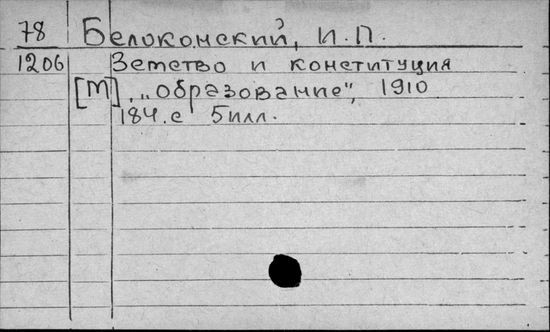 78 Белоконский, И.П.
1206 Земство и конституция
[М], „Образование", 1910
184.с 5илл.